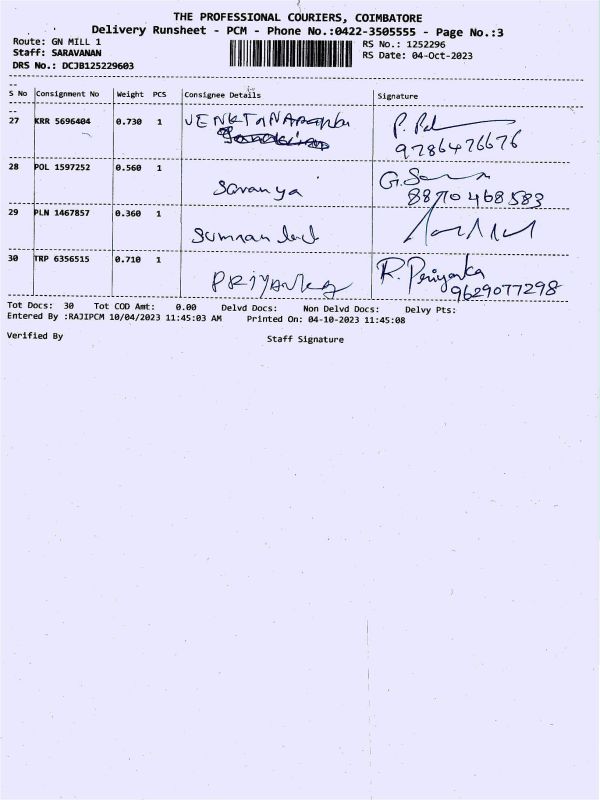 THE PROFESSIONAL COURIERS, COIMBATORE
Delivery Runsheet - PCM - Phone No.:0422-3505555 - Page No.:3
Route: GN MILL 1
RS No.: 1252296
Staff: SARAVANAN
RS Date: 04-Oct-2023
DRS No.: DCJB125229603
S No Consignment No Weight PCS Consignee Details Signature
27 KRR 5696404 0.730 1 P. 
9786476676
28 POL 1597252 0.560 1 Saranya G.
8870468583
29 PLN 1467857 0.360 1
30 TRP 6356515 0.710 1 PRiYanka R. Priyanka
9629077298
Tot Docs: 30 Tot COD Amt: 0.00 Delvd Docs: Non Delvd Docs: Delvy Pts:
Entered By :RAJIPCM 10/04/2023 11:45:03 AM Printed On: 04-10-2023 11:45:08
Verified By Staff Signature